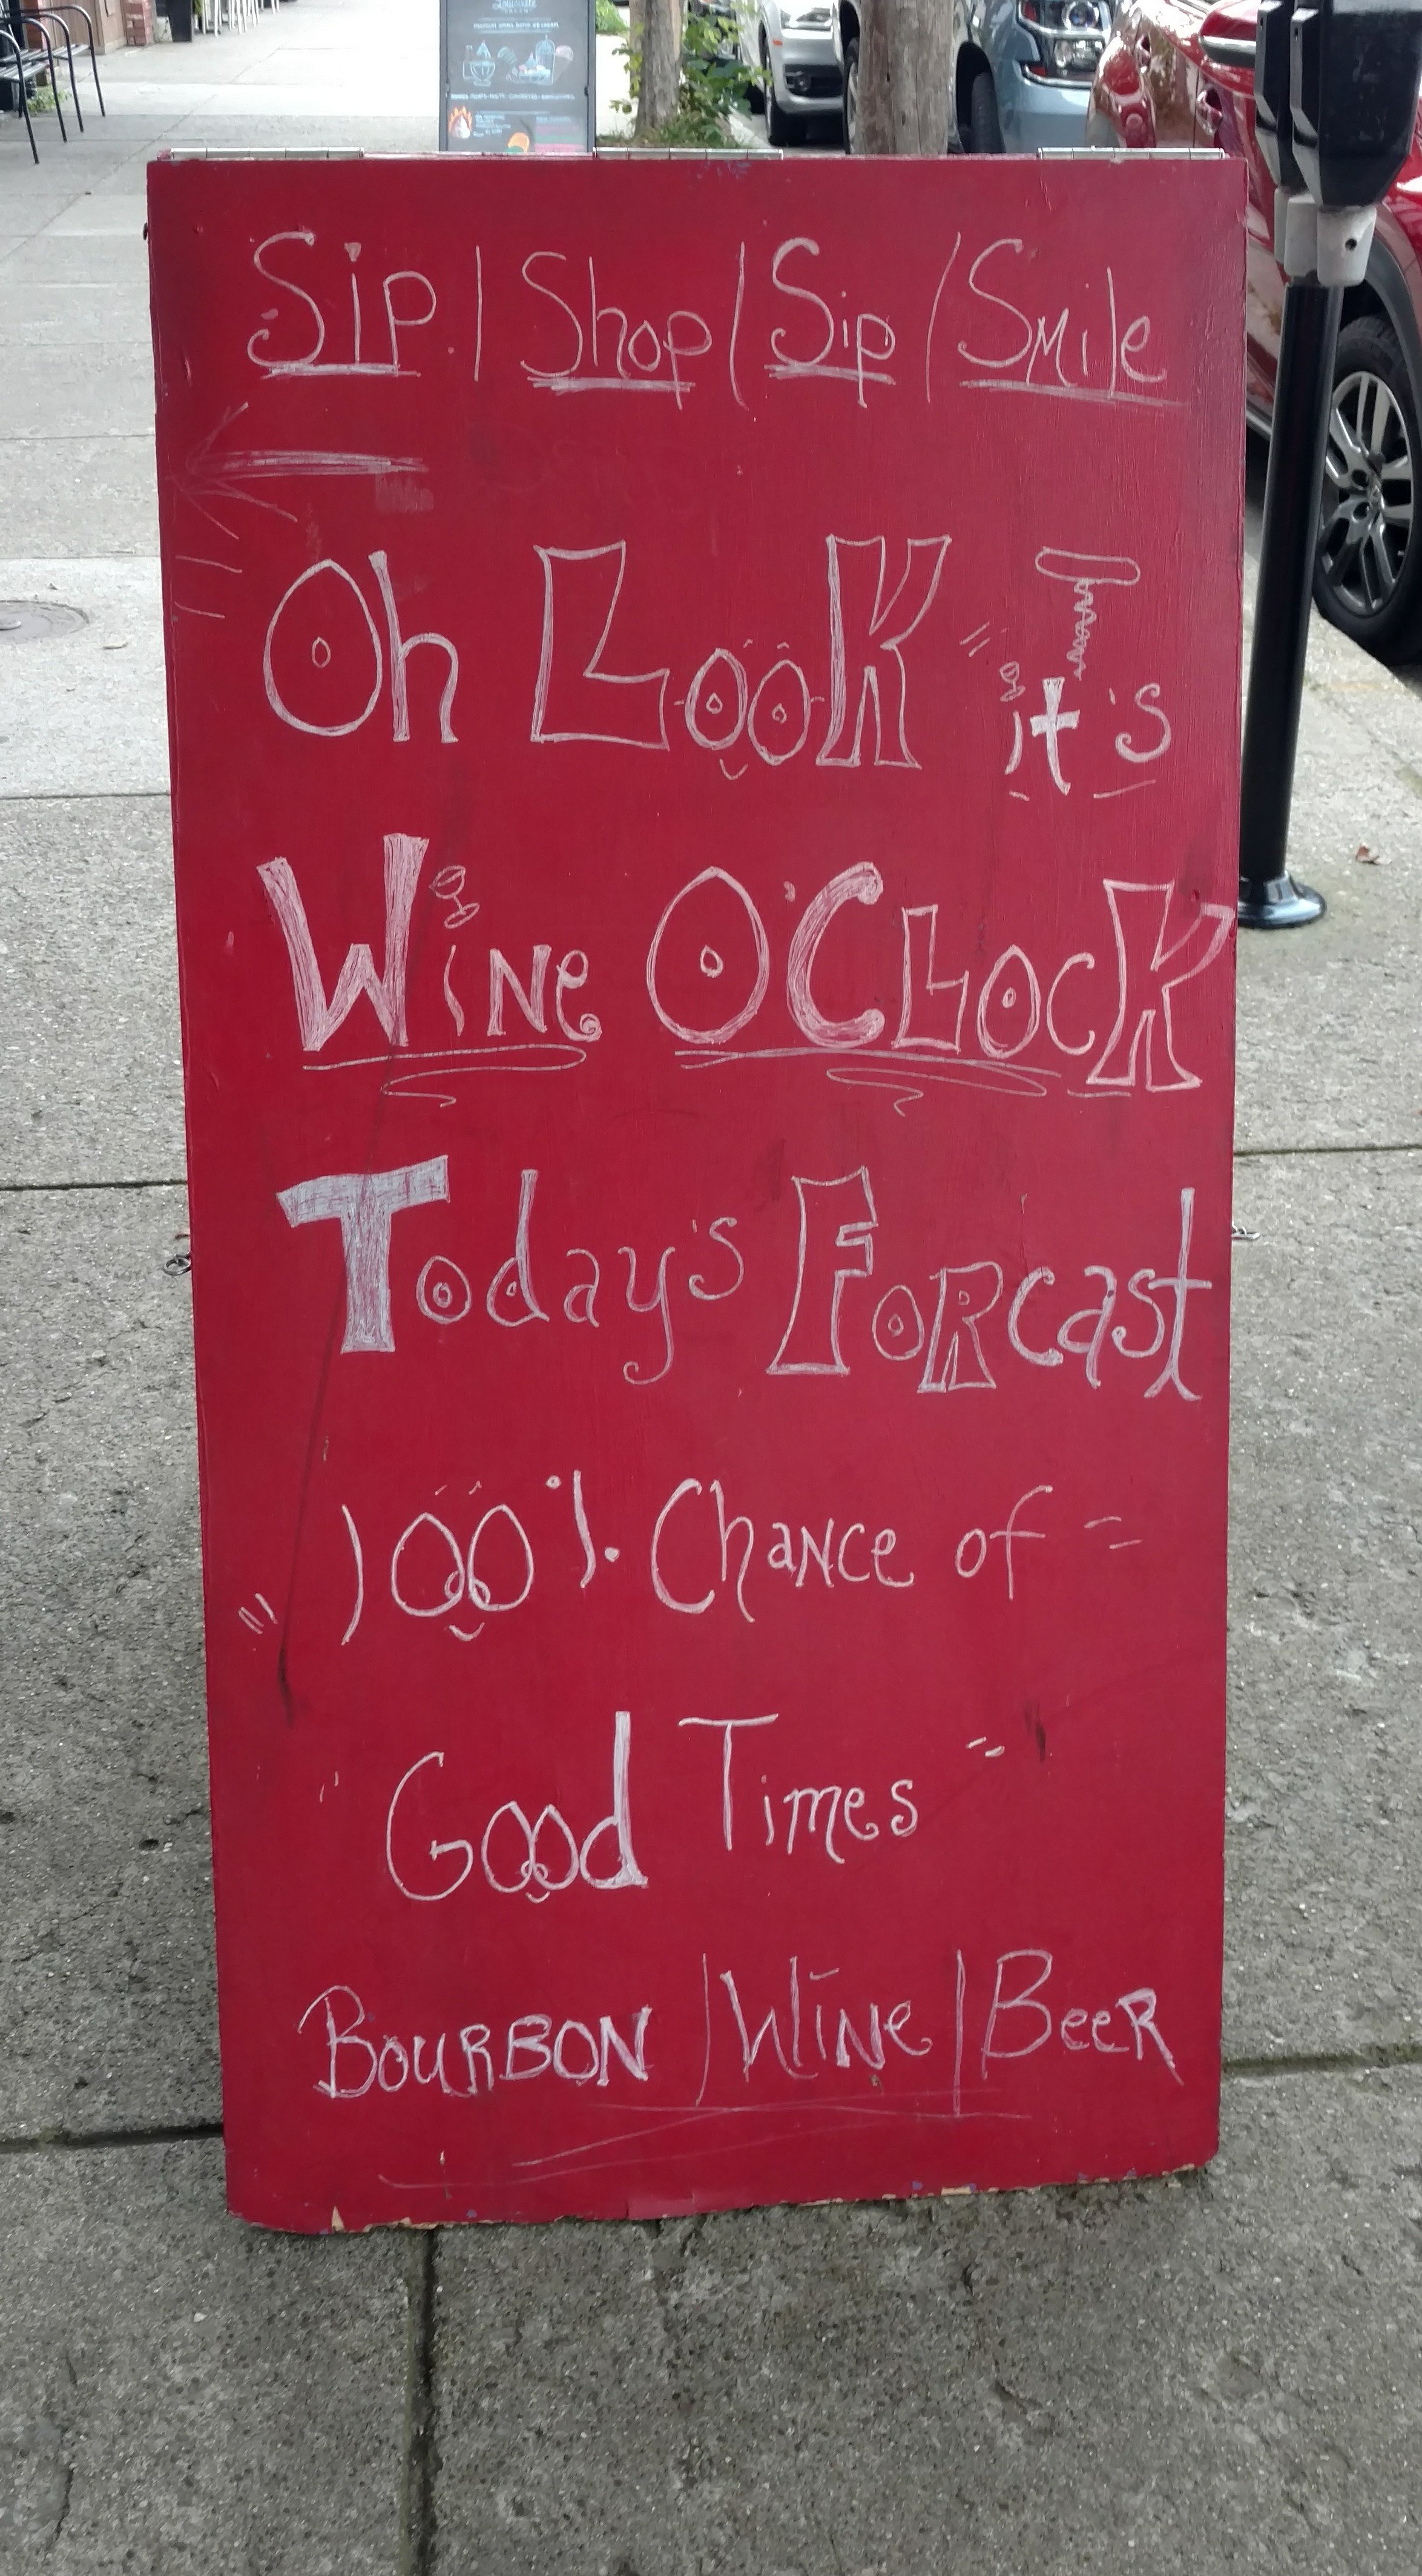 Sip | Shop | Sip | Smile
Oh Look it's
Wine O'Clock
Today's Forcast
100% Chance of
Good Times
Bourbon | Wine | Beer